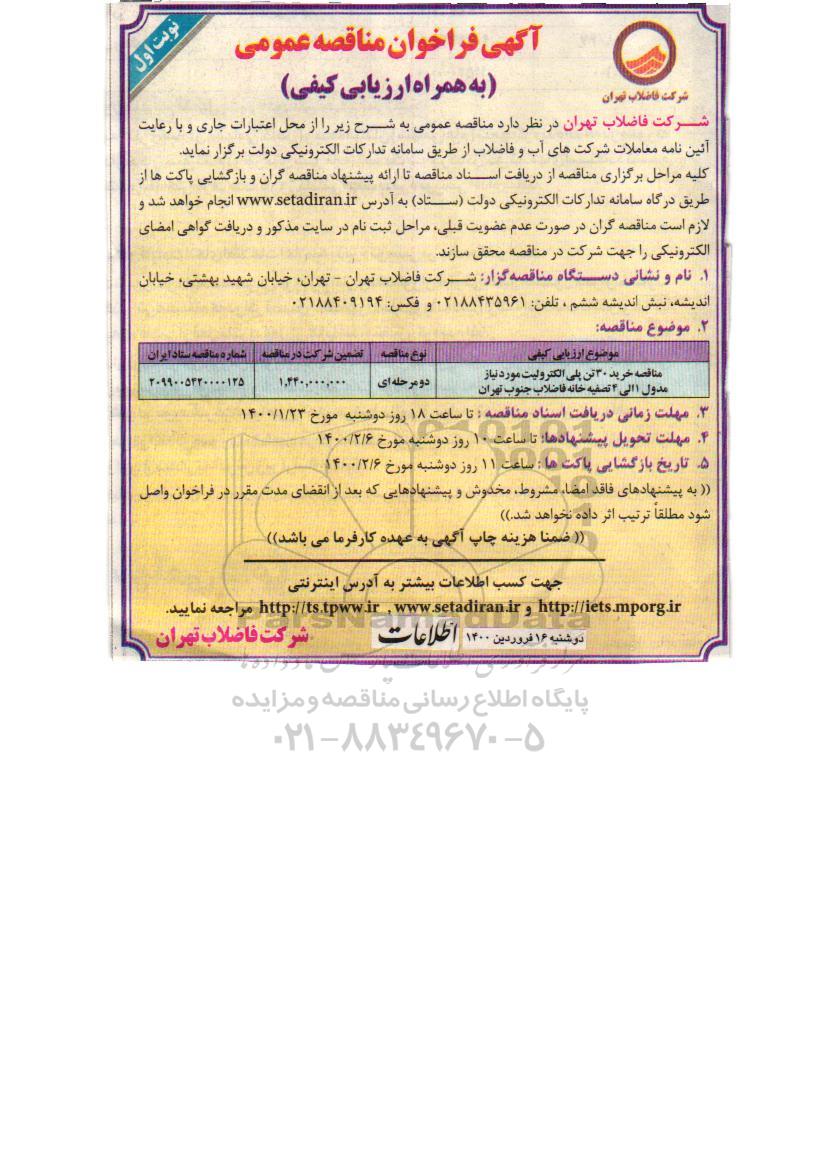 نوبت اول
آگهی فراخوان مناقصه عمومی
(به همراه ارزیابی کیفی)
شرکت فاضلاب تهران
شرکت فاضلاب تهران در نظر دارد مناقصه عمومی به شرح زیر را از محل اعتبارات جاری و با رعایت
آئین نامه معاملات شرکت های آب و فاضلاب از طریق سامانه تدارکات الکترونیکی دولت برگزار نماید.
کلیه مراحل برگزاری مناقصه از دریافت اسناد مناقصه تا ارائه پیشنهاد مناقصه گران و بازگشایی پاکت ها از
طریق درگاه سامانه تدارکات الکترونیکی دولت (ستاد) به آدرس www.setadiran.ir انجام خواهد شد و
لازم است مناقصه گران در صورت عدم عضویت قبلی، مراحل ثبت نام در سایت مذکور و دریافت گواهی امضای
الکترونیکی را جهت شرکت در مناقصه محقق سازند.
۱. نام و نشانی دستگاه مناقصه‌گزار: شرکت فاضلاب تهران - تهران، خیابان شهید بهشتی، خیابان
اندیشه، نبش اندیشه ششم ، تلفن: ۰۲۱۸۸۴۳۵۹۶۱ و فکس: ۰۲۱۸۸۴۰۹۱۹۴
۲. موضوع مناقصه:
موضوع ارزیابی کیفی نوع مناقصه تضمین شرکت در مناقصه شماره مناقصه ستاد ایران
مناقصه خرید ۳۰ تن پلی الکترولیت مورد نیاز
مدول ۱ الی ۴ تصفیه خانه فاضلاب جنوب تهران دو مرحله ای ۱,۴۴۰,۰۰۰,۰۰۰ ۲۰۹۹۰۰۵۴۲۰۰۰۰۱۲۵
۳. مهلت زمانی دریافت اسناد مناقصه : تا ساعت ۱۸ روز دوشنبه مورخ ۱۴۰۰/۱/۲۳
۴. مهلت تحویل پیشنهادها: تا ساعت ۱۰ روز دوشنبه مورخ ۱۴۰۰/۲/۶
۵. تاریخ بازگشایی پاکت ها : ساعت ۱۱ روز دوشنبه مورخ ۱۴۰۰/۲/۶
(( به پیشنهادهای فاقد امضا، مشروط، مخدوش و پیشنهادهایی که بعد از انقضای مدت مقرر در فراخوان واصل
شود مطلقاً ترتیب اثر داده نخواهد شد.))
(( ضمنا هزینه چاپ آگهی به عهده کارفرما می باشد))
جهت کسب اطلاعات بیشتر به آدرس اینترنتی
http://iets.mporg.ir و http://ts.tpww.ir , www.setadiran.ir مراجعه نمایید.
دوشنبه ۱۶ فروردین ۱۴۰۰ اطلاعات
شرکت فاضلاب تهران
ParsNamadData
پایگاه اطلاع رسانی مناقصه و مزایده
۰۲۱-۸۸۳۴۹۶۷۰-۵